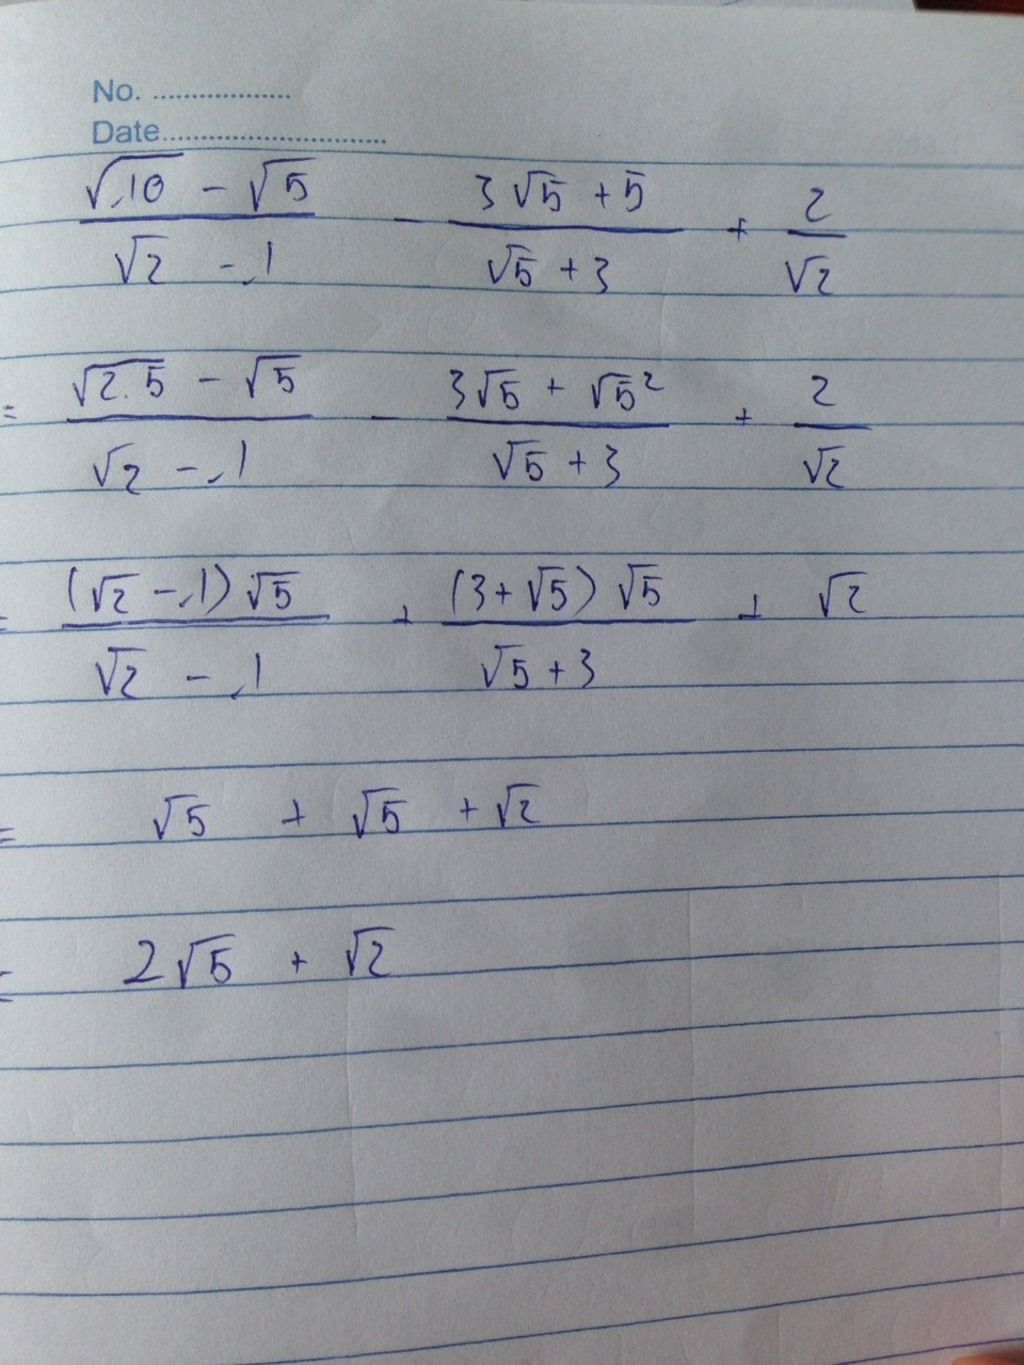 No. ..................
Date............................
(√10 - √5)/(√2 - 1) - (3√5 + 5)/(√5 + 3) + 2/√2
= (√2.5 - √5)/(√2 - 1) - (3√5 + √5²)/(√5 + 3) + 2/√2
= ((√2 - 1)√5)/(√2 - 1) + ((3+√5)√5)/(√5 + 3) + √2
= √5 + √5 + √2
= 2√5 + √2